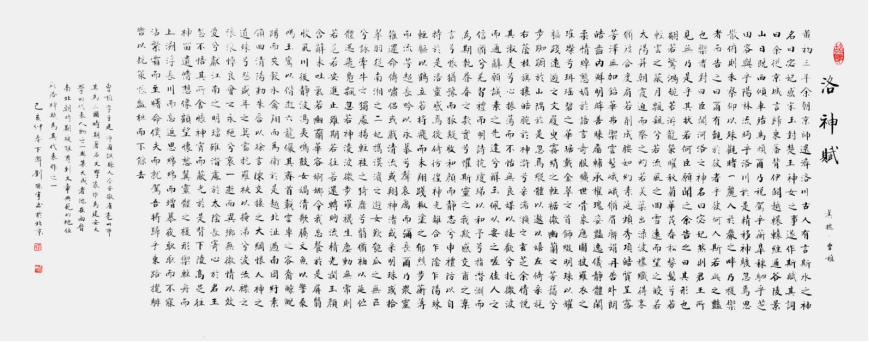 洛神賦
曹植
黄初三年余朝京師還濟洛川古人有言斯水之神
名曰宓妃感宋玉對楚王神女之事遂作斯賦其詞
曰余從京域言歸東藩背伊闕越轘轅經通谷陵景
山日既西傾車殆馬煩爾乃税駕乎蘅皋秣駟乎芝
田容與乎陽林流眄乎洛川於是精移神駭忽焉思
散俯則未察仰以殊觀睹一麗人於巖之畔乃援御
者而告之曰爾有覿於彼者乎彼何人斯若此之豔
也御者對曰臣聞河洛之神名曰宓妃然則君王所
見無乃是乎其狀若何臣願聞之余告之曰其形也
翩若驚鴻婉若游龍榮曜秋菊華茂春松髣髴兮若
輕雲之蔽月飄飖兮若流風之迴雪遠而望之皎若
太陽升朝霞迫而察之灼若芙蕖出淥波襛纖得衷
修短合度肩若削成腰如約素延頸秀項皓質呈露
芳澤無加鉛華弗御雲髻峩峩修眉聯娟丹脣外朗
皓齒內鮮明眸善睞靨輔承權瓌姿豔逸儀靜體閑
柔情綽態媚於語言奇服曠世骨像應圖披羅衣之
璀粲兮珥瑤碧之華琚戴金翠之首飾綴明珠以耀
軀踐遠遊之文履曳霧綃之輕裾微幽蘭之芳藹兮
步踟躕於山隅於是忽焉縱體以遨以嬉左倚采旄
右蔭桂旗攘皓腕於神滸兮采湍瀨之玄芝余情悦
其淑美兮心振蕩而不怡無良媒以接歡兮託微波
而通辭願誠素之先達兮解玉佩以要之嗟佳人之
信脩兮羌習禮而明詩抗瓊珶以和予兮指潛淵而
為期執眷眷之款實兮懼斯靈之我欺感交甫之棄
言兮悵猶豫而狐疑收和顏而靜志兮申禮防以自
持於是洛靈感焉徙倚彷徨神光離合乍陰乍陽竦
輕軀以鶴立若將飛而未翔踐椒塗之郁烈步蘅薄
而流芳超長吟以永慕兮聲哀厲而彌長爾迺衆靈
雜遝命儔嘯侶或戲清流或翔神渚或采明珠或拾
翠羽從南湘之二妃攜漢濱之游女歎匏瓜之無匹
兮詠牽牛之獨處揚輕袿之猗靡兮翳修袖以延佇
體迅飛鳧飄忽若神陵波微步羅襪生塵動無常則
若危若安進止難期若往若還轉眄流精光潤玉顏
含辭未吐氣若幽蘭華容婀娜令我忘餐於是屏翳
收風川后靜波馮夷鳴鼓女媧清歌騰文魚以警乘
鳴玉鸞以偕逝六龍儼其齊首載雲車之容裔鯨鯢
踴而夾轂水禽翔而為衛於是越北沚過南岡紆素
領迴清陽動朱脣以徐言陳交接之大綱恨人神之
道殊兮怨盛年之莫當抗羅袂以掩涕兮淚流襟之
浪浪悼良會之永絕兮哀一逝而異鄉無微情以效
愛兮獻江南之明璫雖潛處於太陰長寄心於君王
忽不悟其所舍悵神宵而蔽光於是背下陵高足往
神留遺情想像顧望懷愁冀靈體之復形御輕舟而
上溯浮長川而忘返思緜緜而增慕夜耿耿而不寐
霑繁霜而至曙命僕夫而就駕吾將歸乎東路攬騑
轡以抗策悵盤桓而不能去
曹植字子建沛國譙縣人今安徽省亳州市
其為三國時期著名文學家作為建安文
學的代表人物之一與集大成者他在兩晉
南北朝時期被推尊到文章典範的地位
洛神賦為其代表作之一
己亥仲春下澣劉書於北京